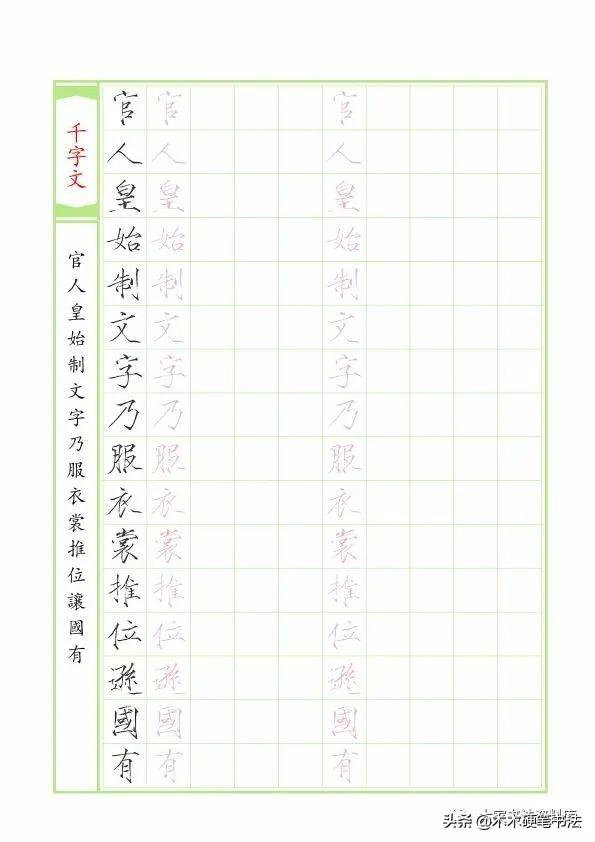 千字文
官人皇始制文字乃服衣裳推位讓國有
官人皇始制文字乃服衣裳推位遜國有
官人皇始制文字乃服衣裳推位遜國有
官人皇始制文字乃服衣裳推位遜國有
头条 @木木硬笔书法